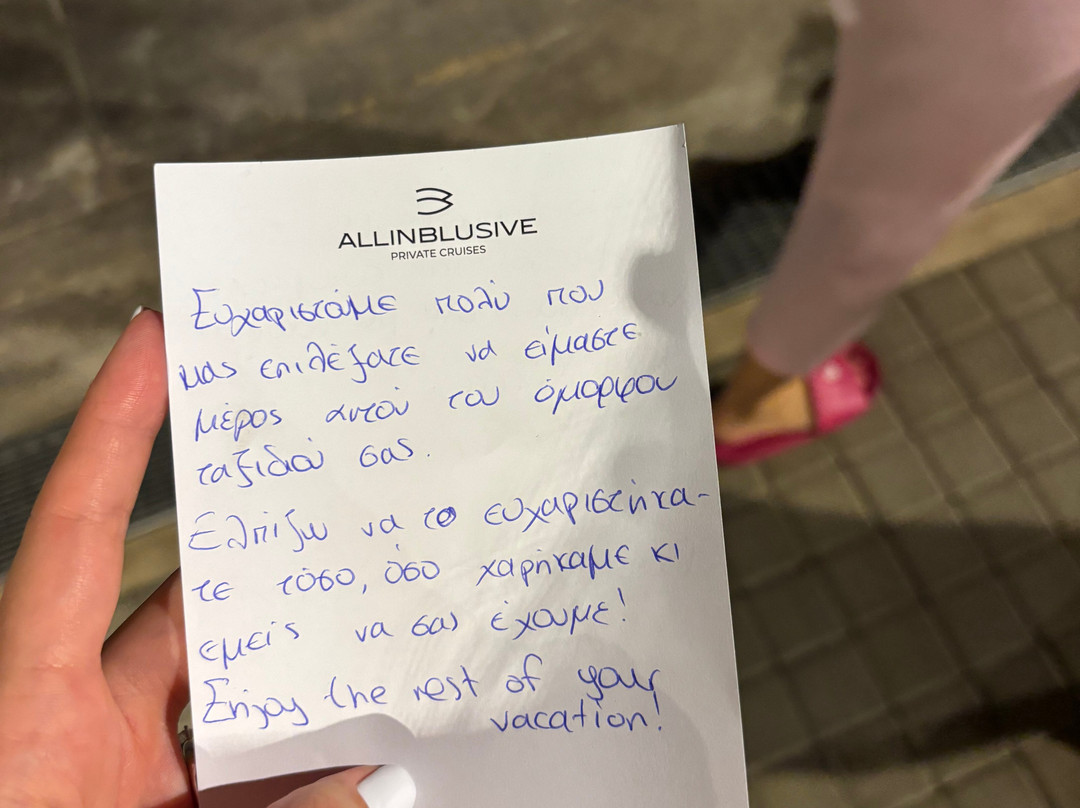 ALLINBLUSIVE
PRIVATE CRUISES
Ευχαριστάμε πολύ που
μας επιλέξατε να είμαστε
μέρος αυτού του όμορφου
ταξιδιού σας.
Ελπίζω να το ευχαριστήκα-
τε τόσο, όσο χαρήκαμε κι
εμείς να σας έχουμε!
Enjoy the rest of your
vacation!